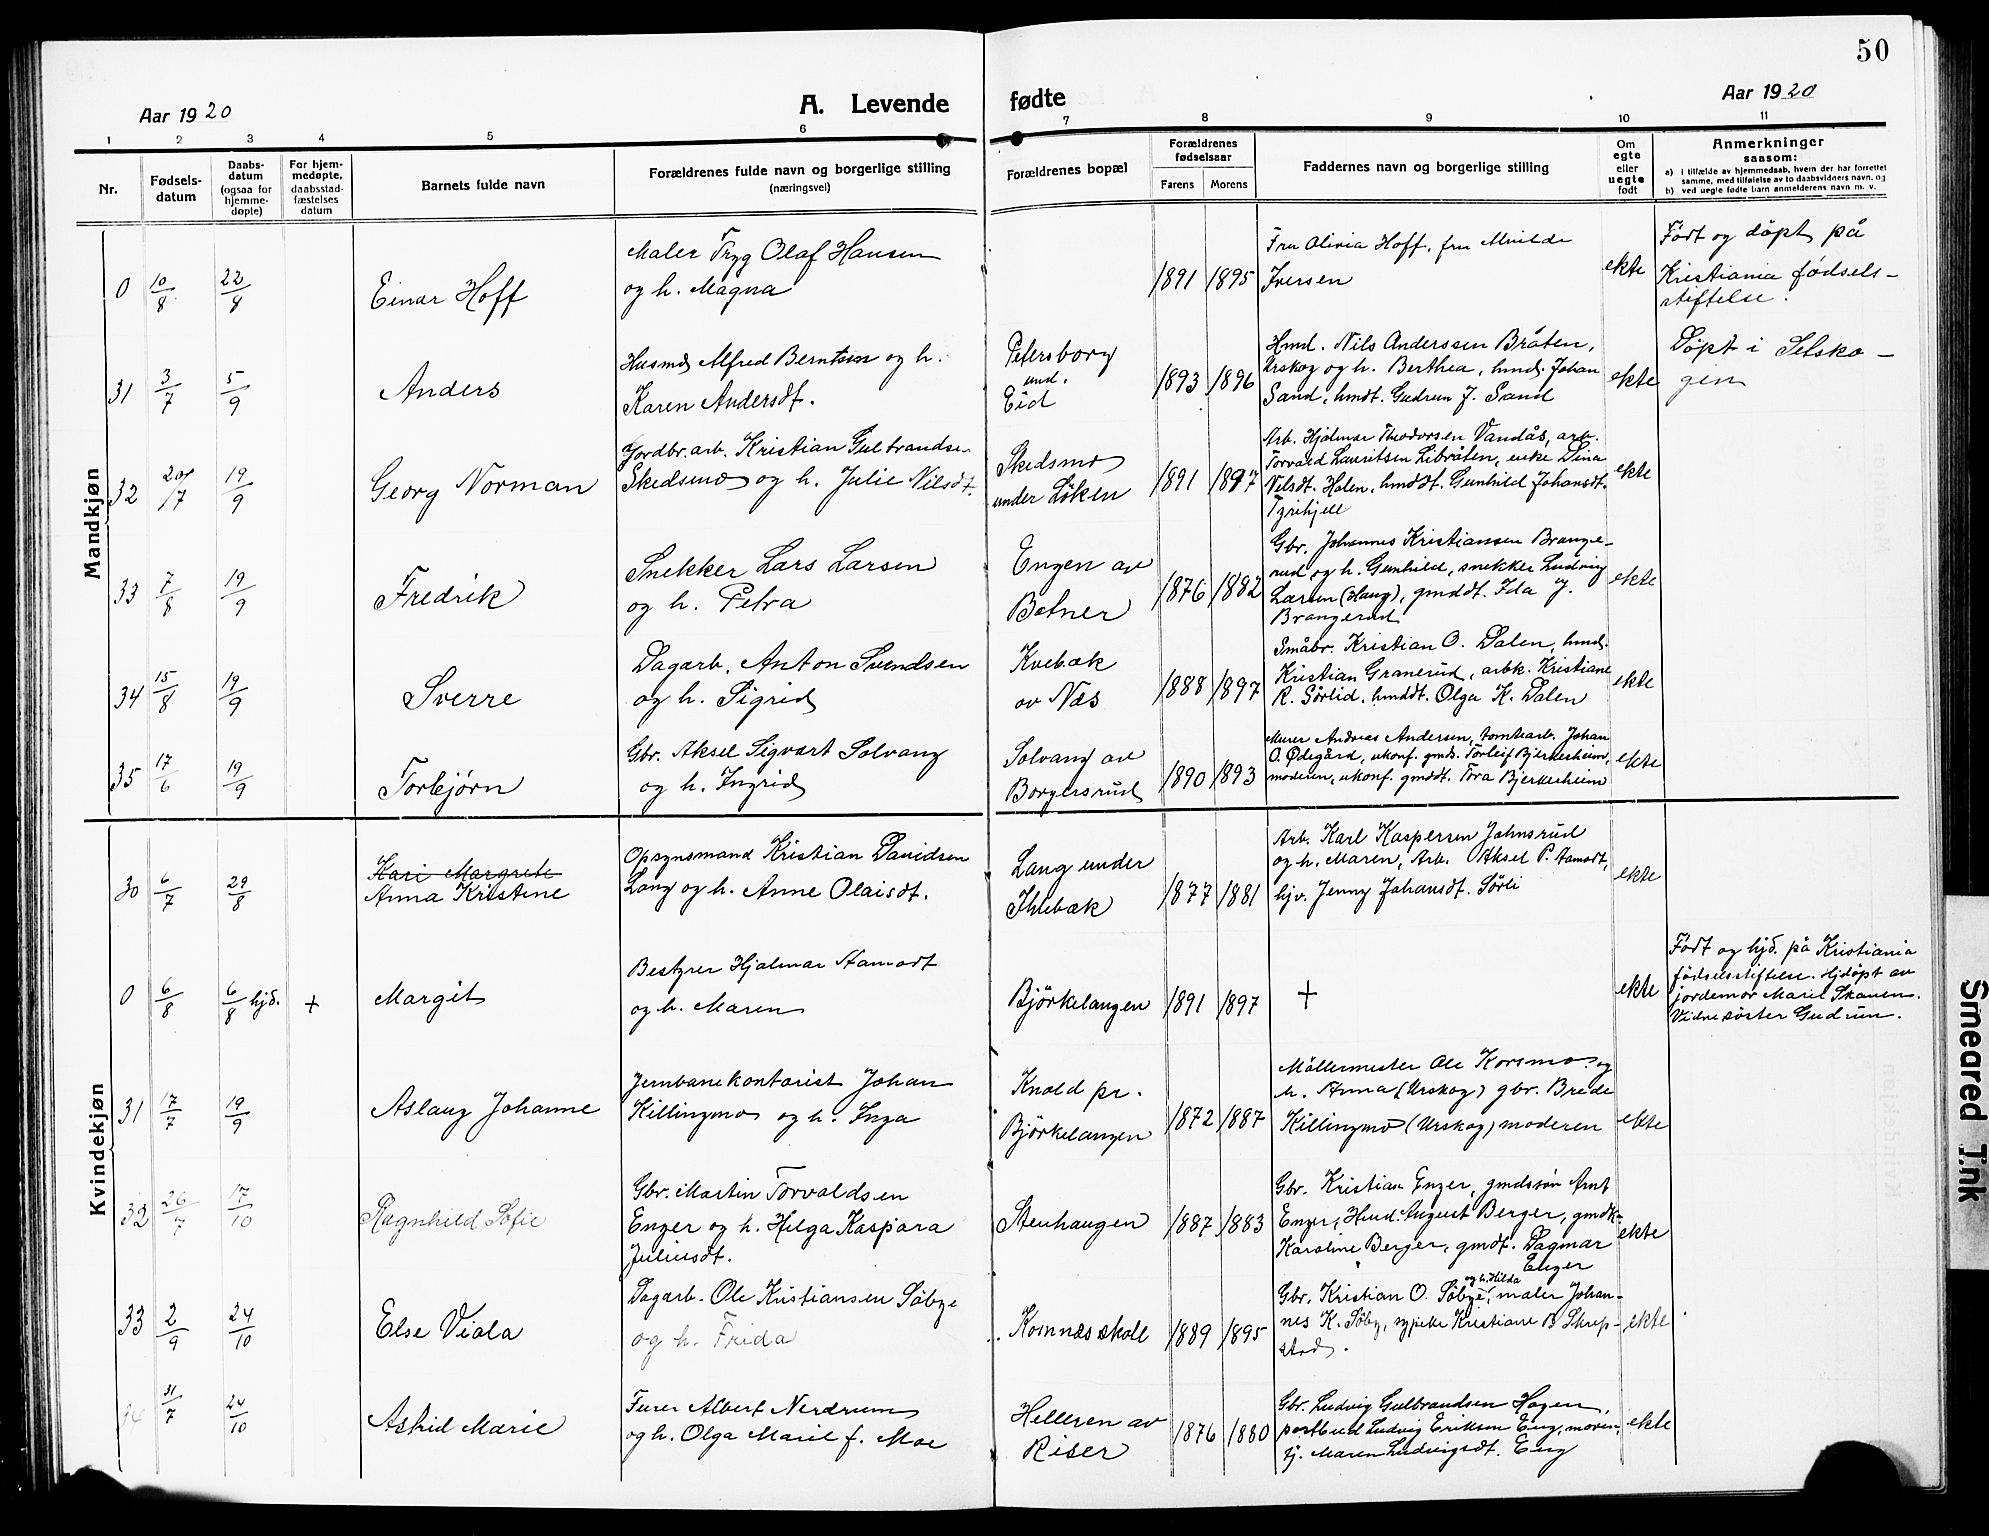 50
Aar 1920
A. Levende fødte
Aar 1920
1 2 3 4 5 6 7 8 9 10 11
Nr.
Fødsels-
datum
Daabs-
datum
(ogsaa for
hjemme-
døpte)
For hjem-
medøpte,
daabsstad-
fæstelses
datum
Barnets fulde navn
Forældrenes fulde navn og borgerlige stilling
(næringsvei)
Forældrenes bopæl
Forældrenes
fødselsaar
Farens Morens
Faddernes navn og borgerlige stilling
Om
egte
eller
uegte
født
Anmerkninger
saasom:
a) i tilfælde av hjemmedaab, hvem der har forrettet
samme, med tilføielse av to daabsvidners navn, og
b) ved uegte fødte barn anmelderens navn m. v.
Mandkjøn
0 10/8 22/8 Einar Hoff
Maler Tryg Olaf Hansen
og h. Magna
1891 1895
Fru Olivia Hoff, fru Mvilde
Iversen
ekte
Født og döpt på
Kristiania fødsels-
stiftelse.
31 3/7 5/9 Anders
Husmd Alfred Berntsen og h.
Karen Andersdt.
Petersborg
und.
Eid
1893 1896
Hmd. Nils Anderssen Bråten,
Urskog og h. Berthea, hmds. Johan
Sand, hmdt. Gudrun J. Sand
ekte
Döpt i Setsko-
gen
32 20/7 19/9 Georg Norman
Jordbr.arb. Kristian Gulbrandsen
Skedsmo og h. Julie Nilsdt.
Skedsmo
under Løken
1891 1897
Arb. Hjalmar Theodorsen Vandås, arb.
Torvald Lauritsen Libråten, enke Dina
Nilsdt. Holen, hmddt. Gunhild Johansdt.
Tyrihjell
ekte
33 7/8 19/9 Fredrik
Snekker Lars Larsen
og h. Petra
Engen av
Botner
1876 1882
Gbr. Johannes Kristiansen Brange-
rud og h. Gunhild, snekker Ludvig
Larsen (Haug), gmddt. Ida J.
Brangerud
ekte
34 15/8 19/9 Sverre
Dagarb. Anton Svendsen
og h. Sigrid
Kvebæk
av Næs
1888 1897
Småbr. Kristian O. Dalen, hmd.
Kristian Granerud, arbk. Kristiane
R. Sörlid, hmddt. Olga K. Dalen
ekte
35 17/6 19/9 Torbjørn
Gbr. Aksel Sigvart Solvang
og h. Ingrid
Solvang av
Borgersrud
1890 1893
Murer Andreas Andersen, tomtearb. Johan
O. Ødegård, ukonf. gmds. Torleif Bjerkerheim,
moderen, ukonf. gmddt. Tora Bjerkerheim
ekte
Kvindekjøn
30 6/7 29/8 Kari Margrete
Anna Kristine
Opsynsmand Kristian Davidsen
Lang og h. Anne Olaisdt.
Lang under
Ihlebæk
1877 1881
Arb. Karl Kaspersen Johnsrud
og h. Maren, Arb. Aksel P. Aamodt,
hjv. Jenny Johansdt. Sörli
ekte
0 6/8 6/8 hjd. + Margit
Bestyrer Hjalmar Aamodt
og h. Maren
Björkelangen
1891 1897
+
ekte
Født og hjd. på Kristiania
fødselsstiftelse. Hjdöpt av
jordemor Marie Skauen.
Vidne söster Gudrun.
31 17/7 19/9 Aslaug Johanne
Jernbanekontorist Johan
Killingmo og h. Inga
Knold pr.
Björkelangen
1872 1887
Möllermester Ole Korsmo og
h. Anna (Urskog) gbr. Brede
Killingmo (Urskog) moderen
ekte
32 26/7 17/10 Ragnhild Sofie
Gbr. Martin Torvaldsen
Enger og h. Helga Kaspara
Juliusdt.
Stenhaugen
1887 1883
Gbr. Kristian Enger, gmdssön Arnt
Enger, Hmd. August Berger, gmdk.
Karoline Berger, gmdt. Dagmar
Enger
ekte
33 2/9 24/10 Else Viola
Dagarb. Ole Kristiansen Söbye
og h. Frida
Komnæs skole
1889 1895
Gbr. Kristian O. Söbye og h. Hilda, maler Johan-
nes K. Söby, sypike Kristiane B. Skrep-
stad.
ekte
34 31/7 24/10 Astrid Marie
Furer Albert Nerdrum
og h. Olga Marie f. Moe
Helleren av
Riser
1876 1880
Gbr. Ludvig Gulbrandsen Hogen,
postbud Ludvig Eriksen Eng, moren,
tj. Maren Ludvigsdt. Eng
ekte
Smeared Ink